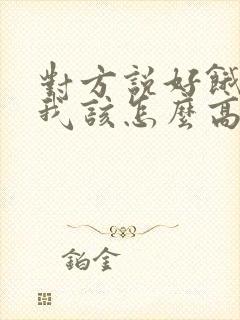 對方說好餓
我該怎麼高
鉑金